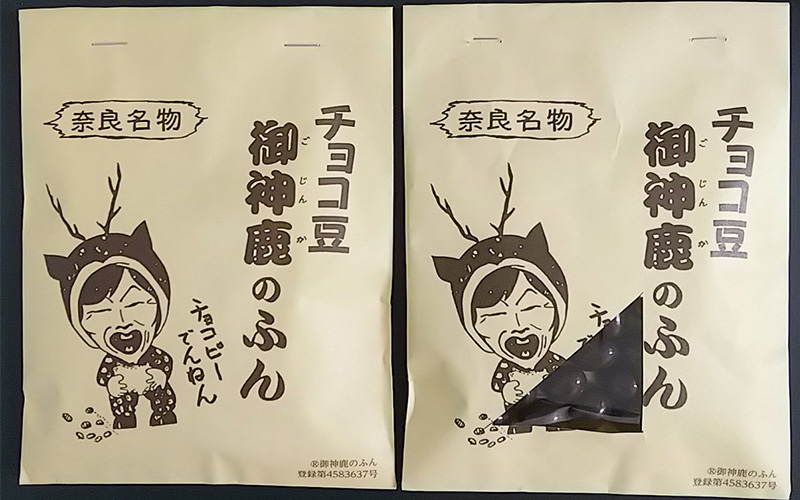 チョコ豆
御神鹿のふん
ごじんか
奈良名物
チョコピー
でんねん
®御神鹿のふん
登録第4583637号
チョコ豆
御神鹿のふん
ごじんか
奈良名物
®御神鹿のふん
登録第4583637号